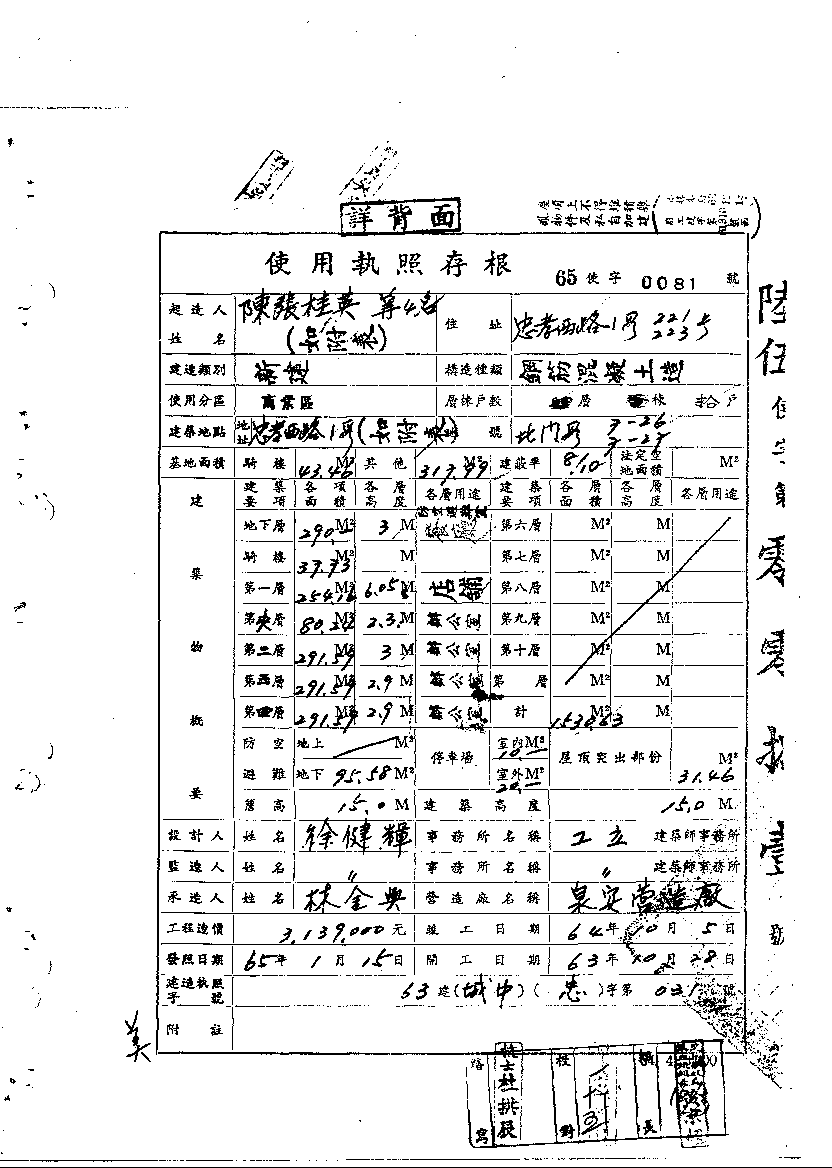 詳背面
使用執照存根
65使字0081號
起造人姓名 陳張桂英 等4名 (如附表) 住址 忠孝西路1段 221 223號
建造類別 新建 構造種類 鋼筋混凝土造
使用分區 商業區 層棟戶數 層 棟 拾戶
建築地點 地址 忠孝西路1段(如附表) 號 北門段 7-26 7-27
基地面積 騎樓 43.46 M² 其他 317.99 M² 建蔽率 8/10 法定空地面積 M²
建築物概要 建築要項 各項面積 各層高度 各層用途 建築要項 各層面積 各層高度 各層用途
地下層 290. M² 3 M 第六層 M² M
騎樓 37.73 M² M 第七層 M² M
第一層 254.16 M² 6.05 M 店鋪 第八層 M² M
第夾層 80.24 M² 2.3 M 辦公室 第九層 M² M
第二層 291.59 M² 3 M 辦公室 第十層 M² M
第層 291.59 M² 2.9 M 辦公室 第 層 M² M
第層 291.59 M² 2.9 M 辦公室 計 1530.63 M² M
防空避難 地上 M² 停車場 室內 M² 屋頂突出部份 M²
地下 95.58 M² 室外 20. M² 31.46
簷高 15.0 M 建築高度 15.0 M
設計人 姓名 徐健輝 事務所名稱 工立 建築師事務所
監造人 姓名 〃 事務所名稱 〃 建築師事務所
承造人 姓名 林金興 營造廠名稱 泉安營造廠
工程造價 3,139,000元 竣工日期 64年10月5日
發照日期 65年1月15日 開工日期 63年10月28日
建造執照字號 63建(城中)(忠)字第031號
附註
美
陸伍使字第零零捌壹號
繕寫 校對 核長